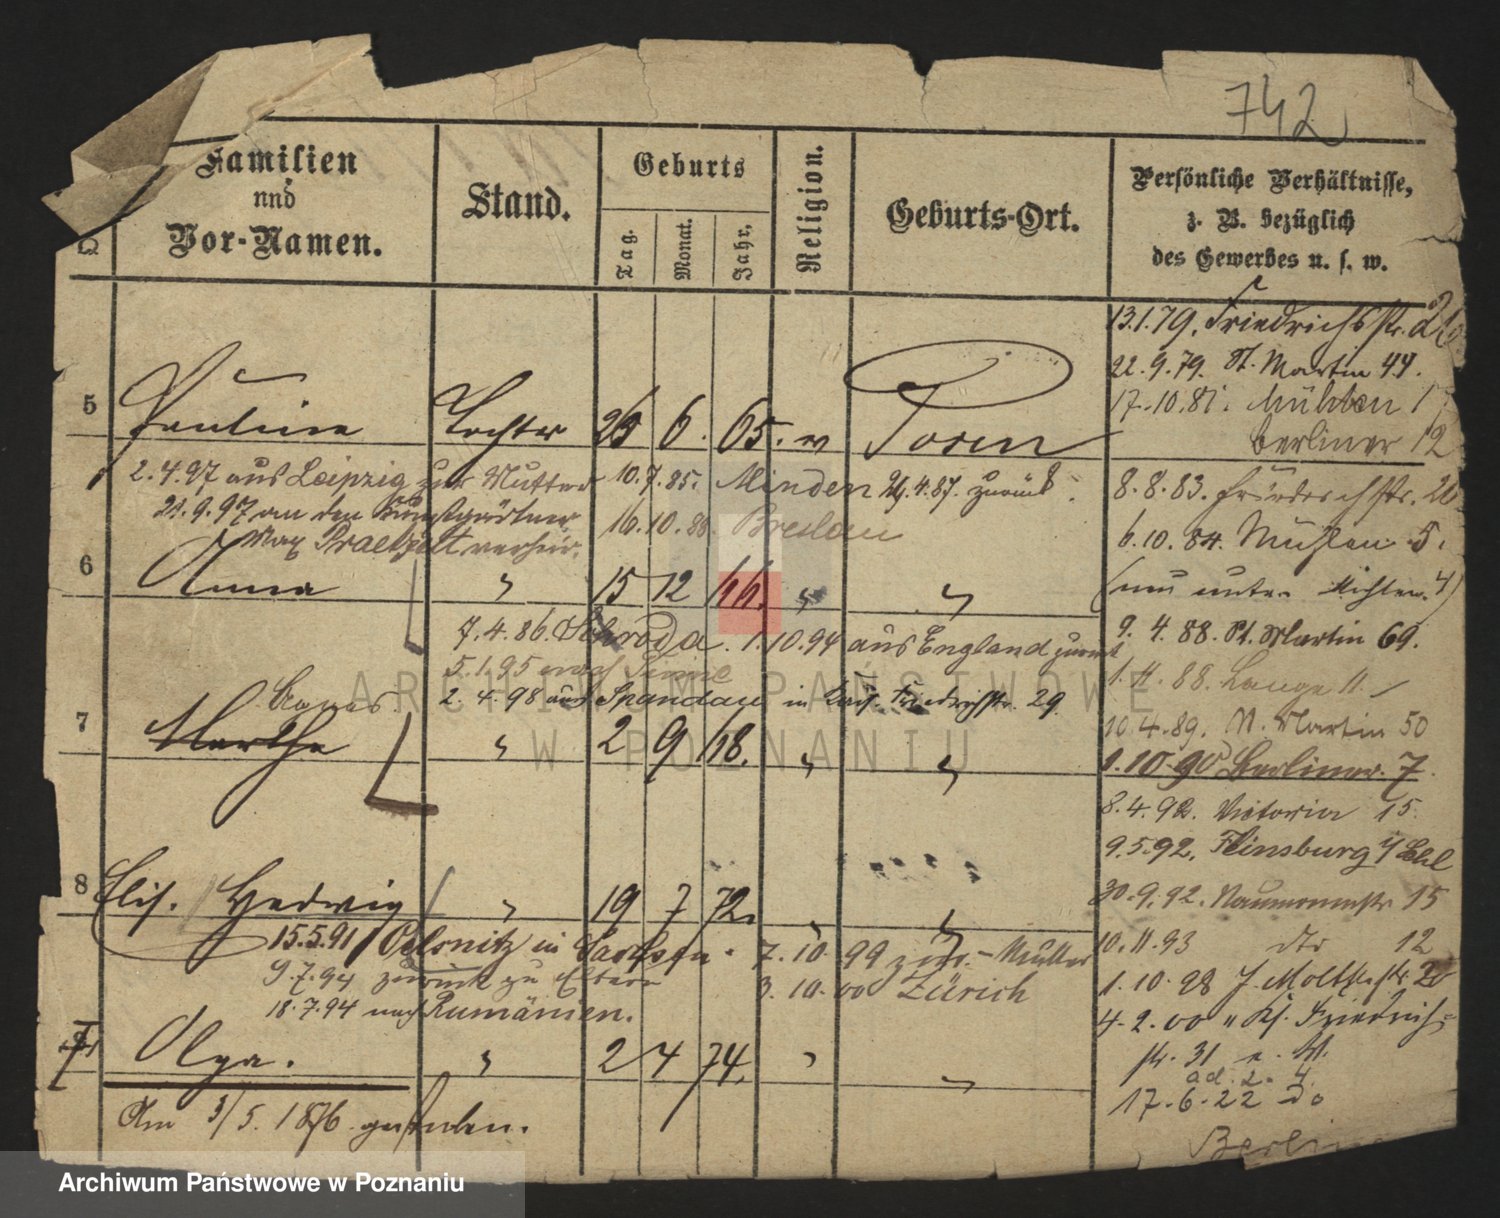 742
Familien
und
Vor-Namen.
Stand.
Geburts
Tag.
Monat.
Jahr.
Religion.
Geburts-Ort.
Persönliche Verhältnisse,
z. B. bezüglich
des Gewerbes u. s. w.
13.1.79. Friedrichsstr.
22.9.79. St. Martin 44.
17.10.81. Mühlen
berliner 12
5 Pauline Tochter 26 6. 65. Posen
2.4.97 aus Leipzig zur Mutter 10.7.85. Minden 4.87. zurück.
21.9.97 an den Kunstgärtner 16.10. Breslau
Max verheir.
8.8.83. Friedrichstr.
6.10.84. Mühlen 5.
(neu unter 4)
6 Anna " 15 12 66. " "
7.4.86. Schroda. 1.10.94 aus England zurück
5.1.95 nach
2.4.98 aus Spandau in Kais. Friedrichstr. 29.
9.4.88. St. Martin 69.
1.11.88. Lange 11.
10.4.89. St. Martin 50
1.10.90 Berliner. 7.
7 Agnes
Marthe " 2 9 68. " "
8.4.92. Victoria 15.
9.5.92. Flinsburg
30.9.92. Naumannstr. 15
8 Elis. Hedwig " 19 7 72. " "
15.5.91 Oelsnitz in Sachsen. 7.10.99 zur. - Mutter
9.7.94 zurück zu Eltern 3.10.00 Zürich
18.7.94 nach Rumänien.
10.11.93 dto 12
1.10.98 Moltkestr.
4.2.00 " Ks. Friedrich-
str. 31
ad. 2. 4.
17.6.22 do
Berlin
Olga. " 2 4 74. " "
Am 3/5. 1876 gestorben.
ARCHIWUM PAŃSTWOWE
W POZNANIU
Archiwum Państwowe w Poznaniu